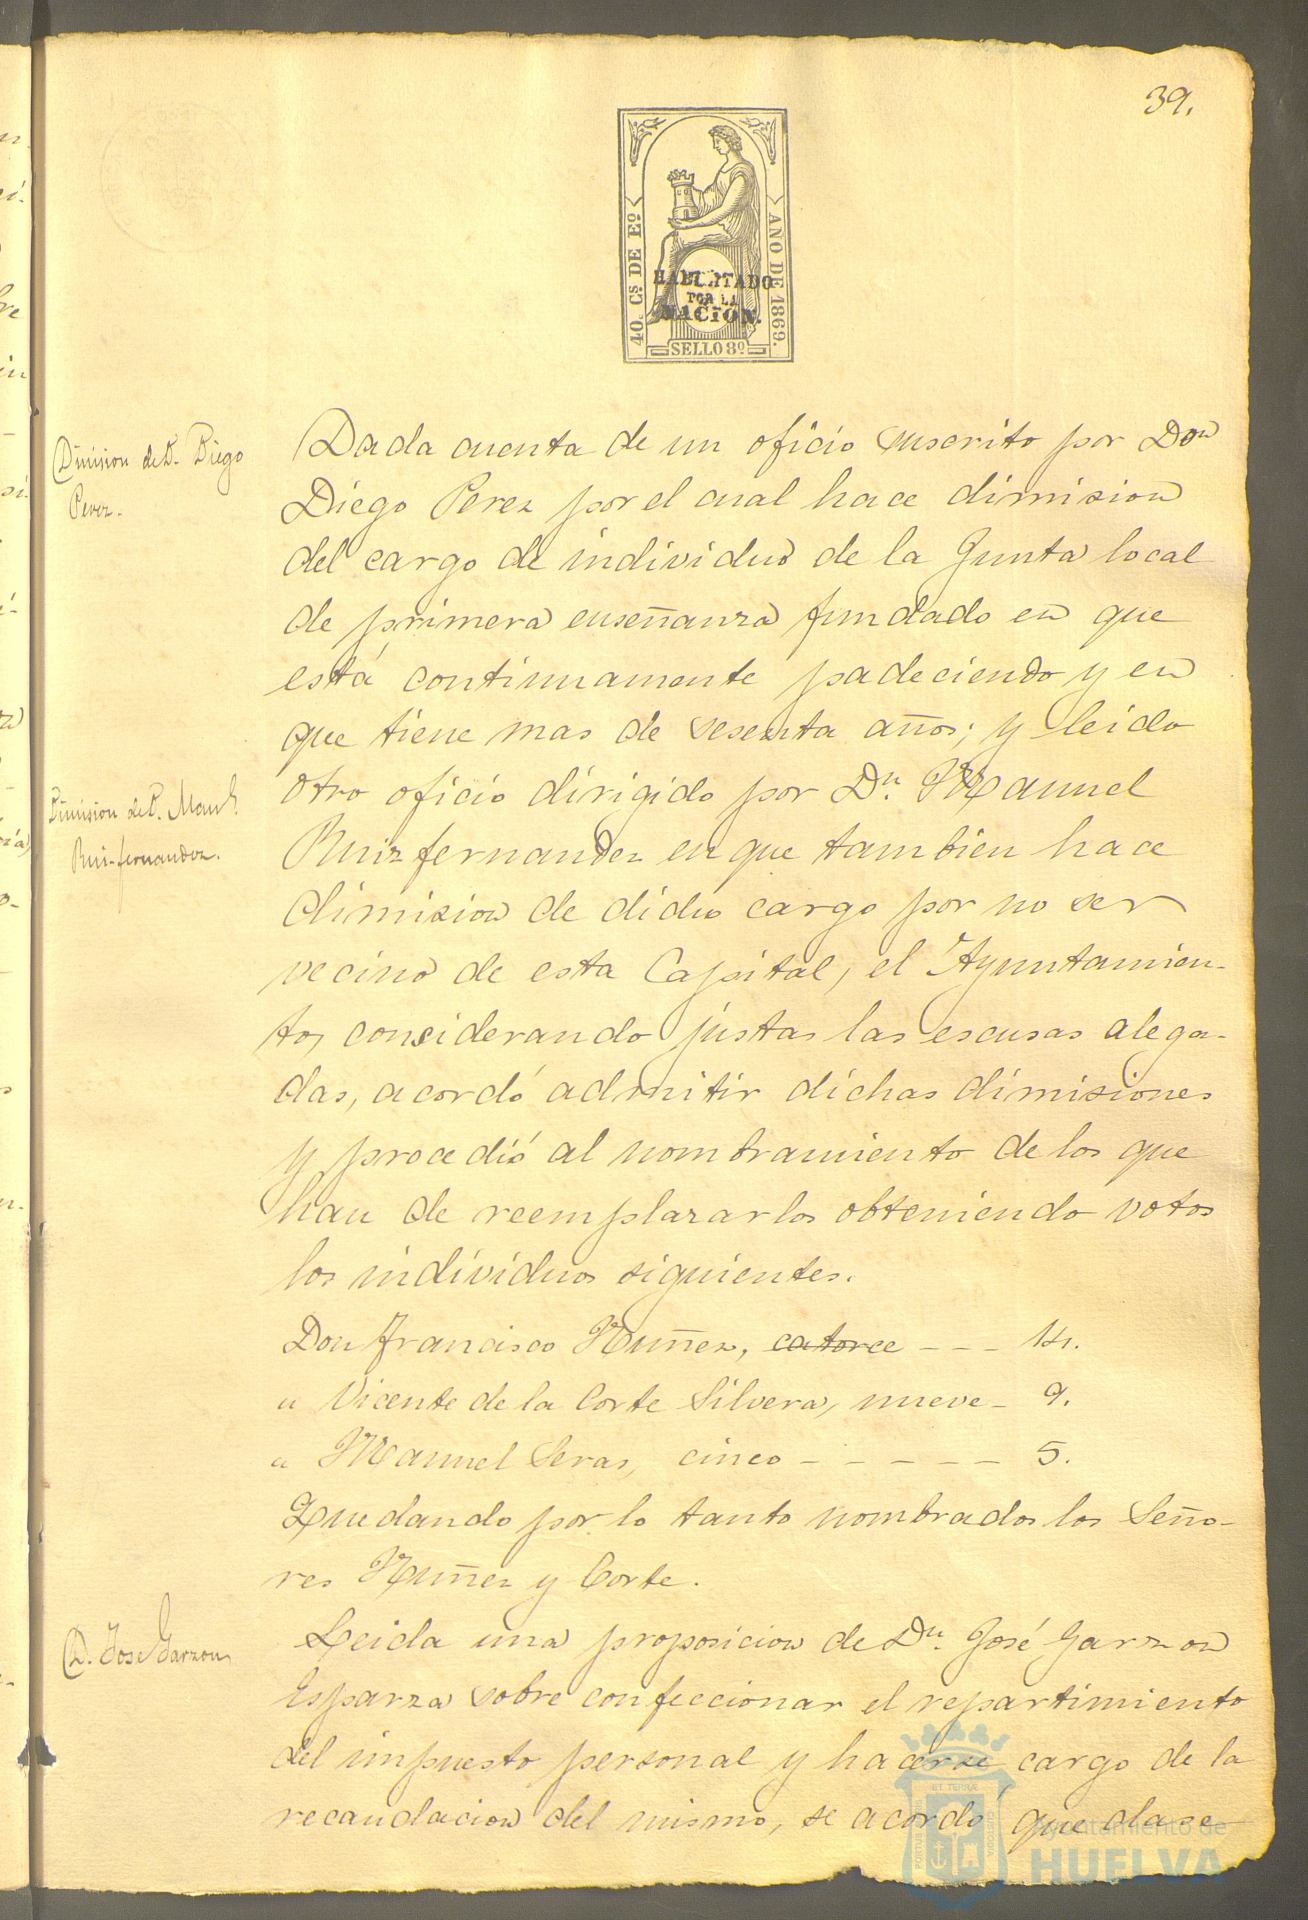 39.
40. Cs. DE Eº
AÑO DE 1869.
HABILITADO
POR LA
NACION.
SELLO 8º
Dimision de D. Diego
Perez.
Dada cuenta de un oficio suscrito por Don
Diego Perez por el cual hace dimision
del cargo de individuo de la Junta local
de primera enseñanza fundado en que
está continuamente padeciendo y en
que tiene mas de sesenta años; y leido
Dimision de D. Manl.
Ruizfernandez.
otro oficio dirigido por Dn. Manuel
Ruizfernandez en que tambien hace
dimision de dicho cargo por no ser
vecino de esta Capital, el Ayuntamien-
to, considerando justas las escusas alega-
das, acordó admitir dichas dimisiones
y procedió al nombramiento de los que
han de reemplazarlos obteniendo votos
los individuos siguientes.
Don Francisco Nuñez, catorce - - - 14.
" Vicente de la Corte Silvera, nueve - 9.
" Manuel Seras, cinco - - - - - - 5.
Quedando por lo tanto nombrados los Seño-
res Nuñez y Corte.
D. Jose Garzon
Leida una proposicion de Dn. José Garzon
Esparza sobre confeccionar el repartimiento
del impuesto personal y hacerse cargo de la
recaudacion del mismo, se acordó que dase
Ayuntamiento de
HUELVA